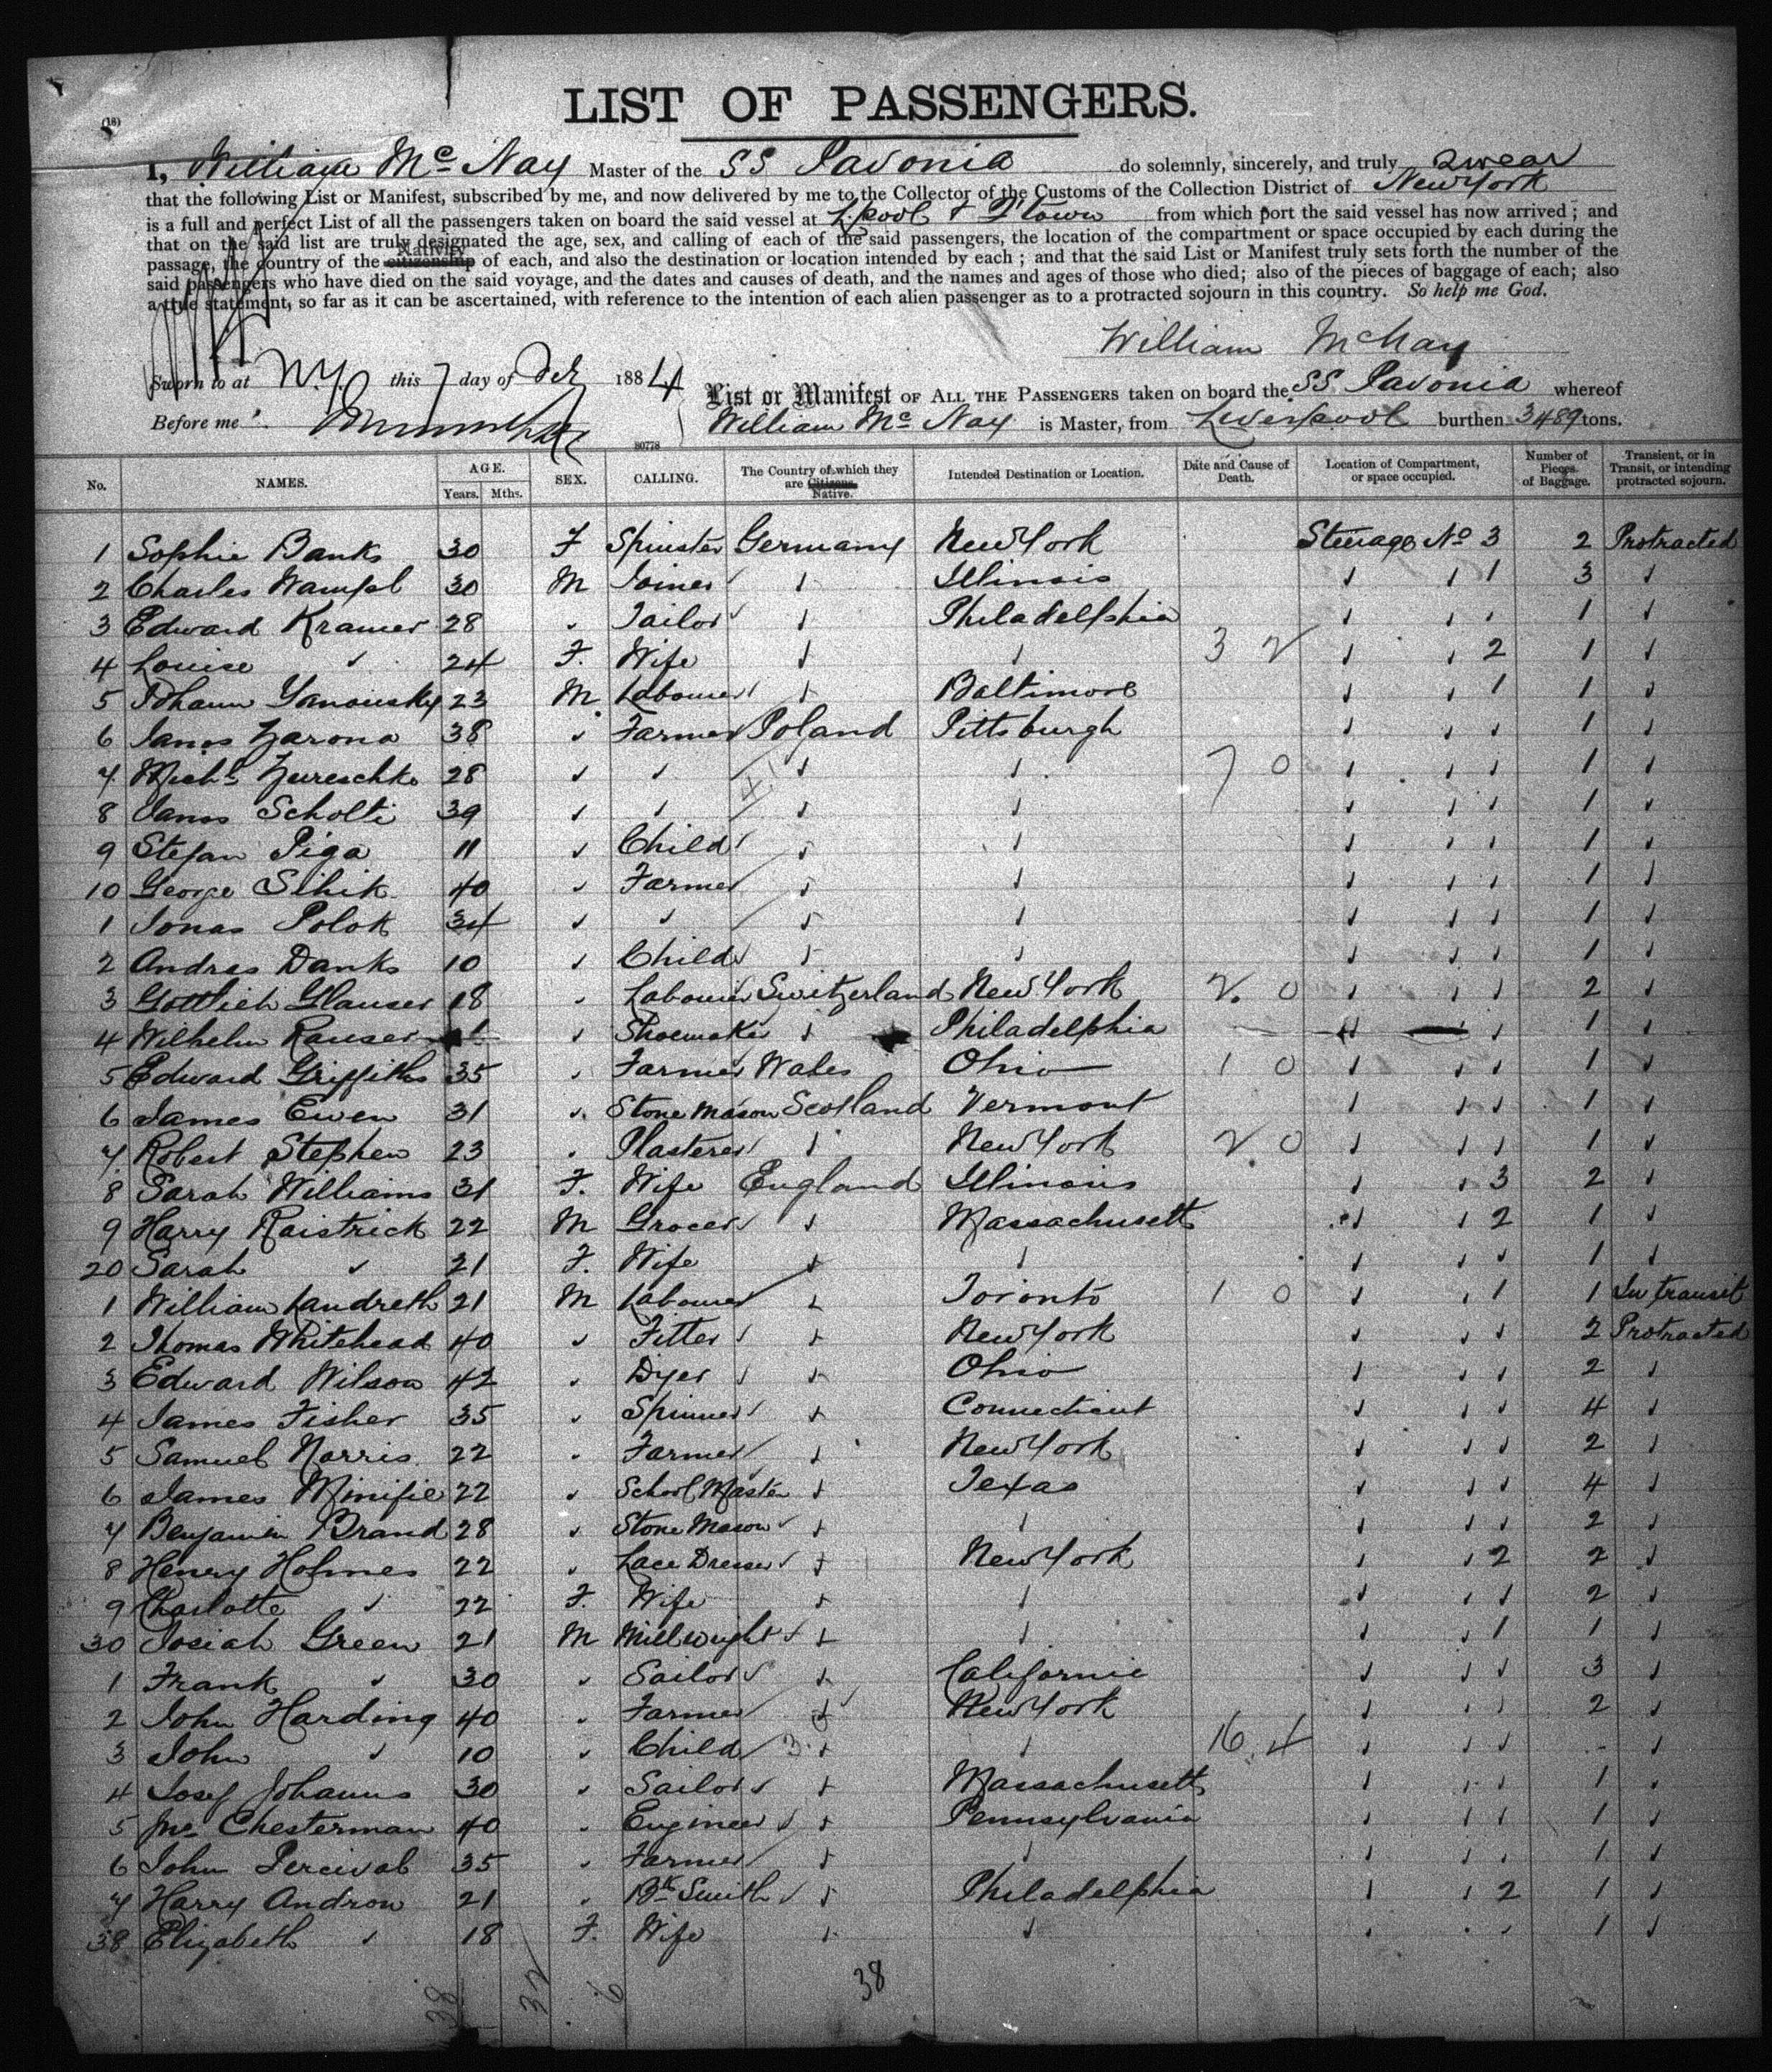 (16)
LIST OF PASSENGERS.
I, William Mc Nay Master of the SS Pavonia do solemnly, sincerely, and truly swear
that the following List or Manifest, subscribed by me, and now delivered by me to the Collector of the Customs of the Collection District of New York
is a full and perfect List of all the passengers taken on board the said vessel at L'pool & Q'town from which port the said vessel has now arrived ; and
that on the said list are truly designated the age, sex, and calling of each of the said passengers, the location of the compartment or space occupied by each during the
Nativity
passage, the country of the citizenship of each, and also the destination or location intended by each ; and that the said List or Manifest truly sets forth the number of the
said passengers who have died on the said voyage, and the dates and causes of death, and the names and ages of those who died; also of the pieces of baggage of each; also
a true statement, so far as it can be ascertained, with reference to the intention of each alien passenger as to a protracted sojourn in this country. So help me God.
William McNay
Sworn to at N.Y. this 7 day of 1884
List or Manifest OF ALL THE PASSENGERS taken on board the SS Pavonia whereof
Before me
William Mc Nay is Master, from Liverpool burthen 3489 tons.
80778
No. NAMES. AGE. Years. Mths. SEX. CALLING. The Country of which they are Citizens. Native. Intended Destination or Location. Date and Cause of Death. Location of Compartment, or space occupied. Number of Pieces of Baggage. Transient, or in Transit, or intending protracted sojourn.
1 Sophie Banks 30 F Spinster Germany New York Steerage No 3 2 Protracted
2 Charles Wampl 30 M Joiner ✓ ✓ Illinois ✓ ✓ 1 3 ✓
3 Edward Kramer 28 ✓ Tailor ✓ ✓ Philadelphia ✓ ✓ ✓ 1 ✓
4 Louise ✓ 24 F. Wife ✓ ✓ 3 2 ✓ ✓ 2 1 ✓
5 Johann Yanousky 23 M Labourer ✓ ✓ Baltimore ✓ ✓ 1 1 ✓
6 Janos Zarona 38 ✓ Farmer Poland Pittsburgh ✓ ✓ ✓ 1 ✓
7 Michl Zureschko 28 ✓ ✓ ✓ ✓ 7 0 ✓ ✓ ✓ 1 ✓
8 Janos Scholti 39 ✓ ✓ ✓ ✓ ✓ ✓ ✓ 1 ✓
9 Stefan Piga 11 ✓ Child ✓ ✓ ✓ ✓ ✓ ✓ 1 ✓
10 George Sihik 40 ✓ Farmer ✓ ✓ ✓ ✓ ✓ 1 ✓
1 Jonas Polok 34 ✓ ✓ ✓ ✓ ✓ ✓ ✓ 1 ✓
2 Andras Danko 10 ✓ Child ✓ ✓ ✓ ✓ ✓ ✓ 1 ✓
3 Gottlieb Glauser 18 ✓ Labourer Switzerland New York 2. 0 ✓ ✓ ✓ 2 ✓
4 Wilhelm Rauser ✓ Shoemaker ✓ Philadelphia ✓ ✓ 1 ✓
5 Edward Griffiths 35 ✓ Farmer Wales Ohio 1 0 ✓ ✓ ✓ 1 ✓
6 James Ewen 31 ✓ Stone Mason Scotland Vermont ✓ ✓ ✓ 1 ✓
7 Robert Stephen 23 ✓ Plasterer ✓ ✓ New York 2. 0 ✓ ✓ ✓ 1 ✓
8 Sarah Williams 31 F. Wife England Illinois ✓ ✓ 3 2 ✓
9 Harry Raistrick 22 M Grocer ✓ ✓ Massachusetts ✓ ✓ 2 1 ✓
20 Sarah ✓ 21 F. Wife ✓ ✓ ✓ ✓ ✓ 1 ✓
1 William Landreth 21 M Labourer ✓ Toronto 1 0 ✓ ✓ 1 1 In transit
2 Thomas Whitehead 40 ✓ Fitter ✓ ✓ New York ✓ ✓ ✓ 2 Protracted
3 Edward Wilson 42 ✓ Dyer ✓ ✓ Ohio ✓ ✓ ✓ 2 ✓
4 James Fisher 35 ✓ Spinner ✓ ✓ Connecticut ✓ ✓ ✓ 4 ✓
5 Samuel Norris 22 ✓ Farmer ✓ ✓ New York ✓ ✓ ✓ 2 ✓
6 James Minifie 22 ✓ School Master ✓ Texas ✓ ✓ ✓ 4 ✓
7 Benjamin Brand 28 ✓ Stone Mason ✓ ✓ ✓ ✓ ✓ ✓ 2 ✓
8 Henry Holmes 22 ✓ Lace Dresser ✓ ✓ New York ✓ ✓ 2 2 ✓
9 Charlotte ✓ 22 F. Wife ✓ ✓ ✓ ✓ ✓ 2 ✓
30 Josiah Green 21 M Millwright ✓ ✓ ✓ ✓ ✓ 1 1 ✓
1 Frank ✓ 30 ✓ Sailor ✓ ✓ California ✓ ✓ ✓ 3 ✓
2 John Harding 40 ✓ Farmer ✓ ✓ New York ✓ ✓ ✓ 2 ✓
3 John ✓ 10 ✓ Child ✓ 3 ✓ ✓ 16. 4 ✓ ✓ ✓ - ✓
4 Josef Johanns 30 ✓ Sailor ✓ ✓ Massachusetts ✓ ✓ ✓ 1 ✓
5 Jno Chesterman 40 ✓ Engineer ✓ ✓ Pennsylvania ✓ ✓ ✓ 1 ✓
6 John Percival 35 ✓ Farmer ✓ ✓ ✓ ✓ ✓ ✓ 1 ✓
7 Harry Andron 21 ✓ Bk Smith ✓ ✓ Philadelphia ✓ ✓ 2 1 ✓
38 Elizabeth ✓ 18 F. Wife ✓ ✓ ✓ ✓ ✓ 1 ✓
38 32 6 38